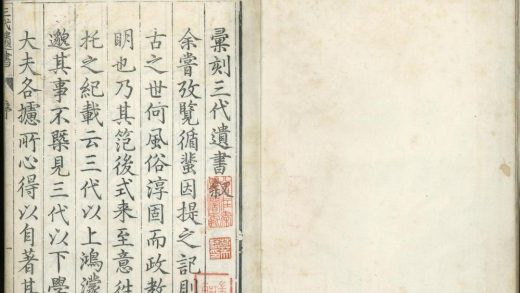 彙刻三代遺書敘
余嘗攷覽循蜚因提之記則
古之世何風俗淳固而政教
明也乃其笵後式來至意往
托之紀載云三代以上鴻濛
邈其事不槩見三代以下學
大夫各攄所心得以自著其
三代遺書 序 一